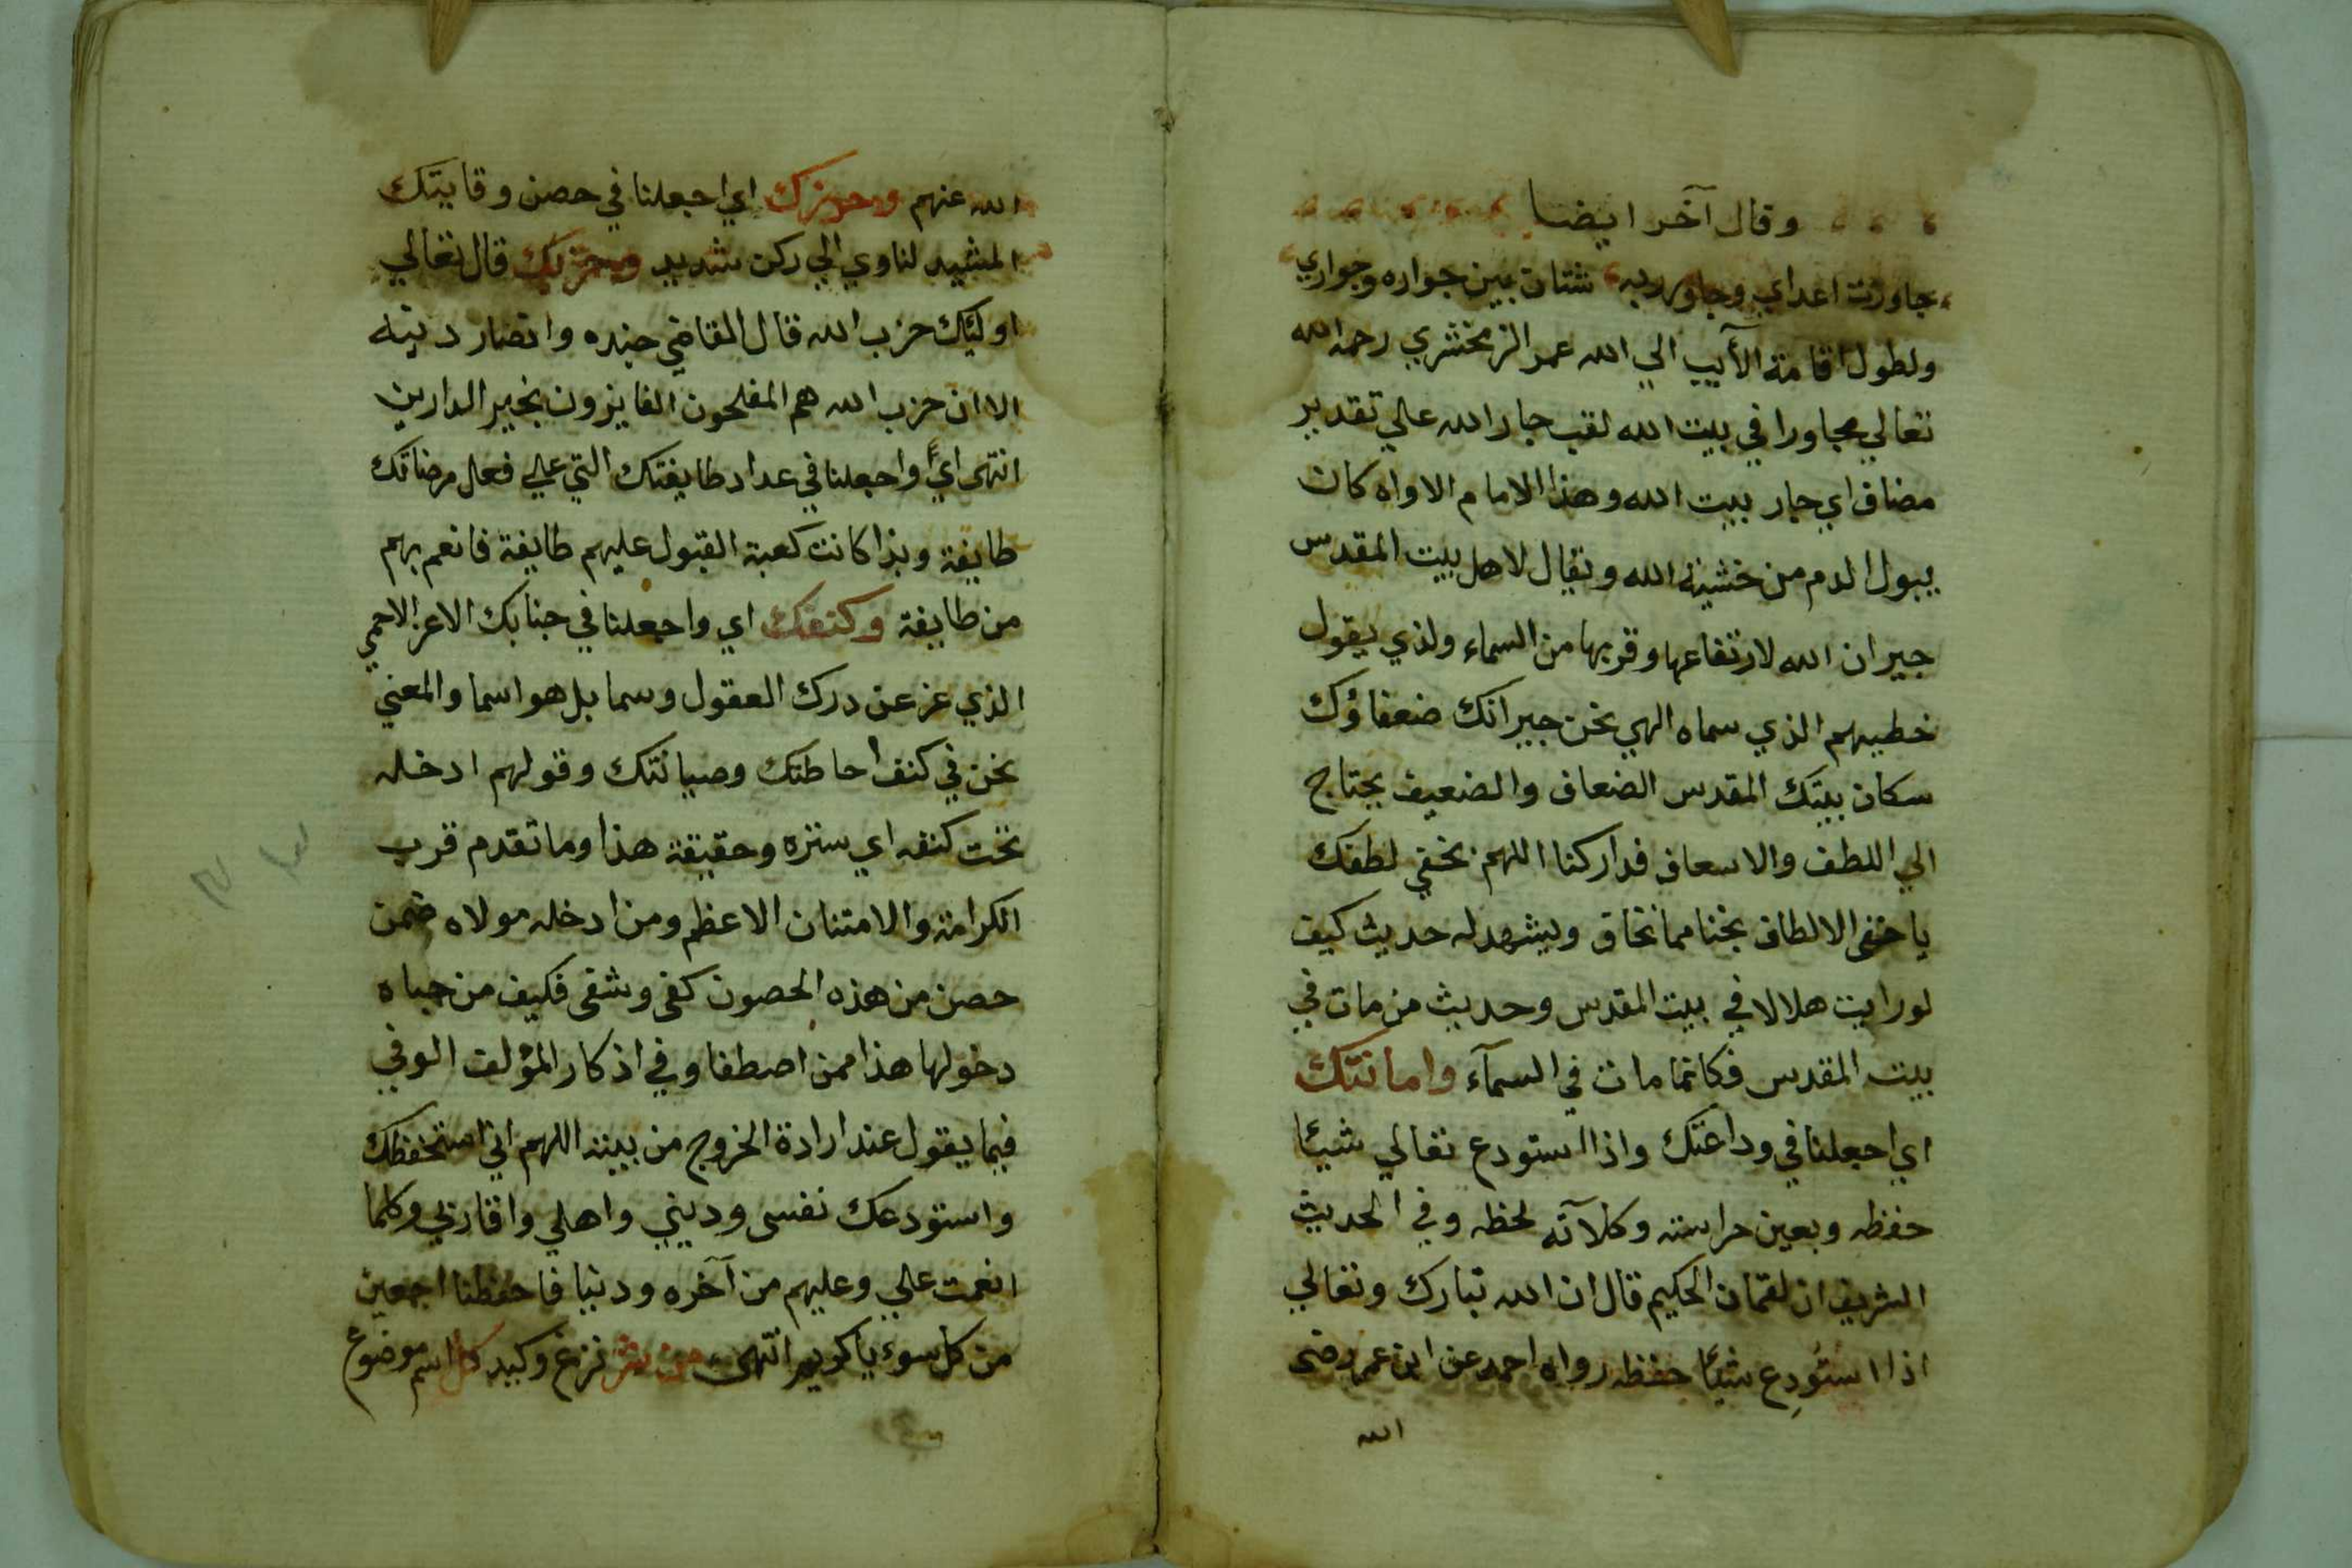 وقال آخر ايضا
جاورت اعداي وجاور ربه شتان بين جواره وجواري
ولطول اقامة الآيب الي الله عمر الزمخشري رحمه الله
تعالي مجاورا في بيت الله لقب جار الله علي تقدير
مضاف اي جار بيت الله وهذا الامام الاواه كان
يبول الدم من خشية الله ويقال لاهل بيت المقدس
جيران الله لارتفاعها وقربها من السماء ولذي يقول
خطيبهم الذي سماه الهي نحن جيرانك ضعفاؤك
سكان بيتك المقدس الضعاف والضعيف يحتاج
الي اللطف والاسعاف فداركنا اللهم بخفي لطفك
يا خفي الالطاف نجنا مما نخاف ويشهد له حديث كيف
لو رايت هلالا في بيت المقدس وحديث من مات في
بيت المقدس فكانما مات في السمآء وامانتك
اي اجعلنا في وداعتك واذا استودع تعالي شيئا
حفظه وبعين حراسته وكلآته لحظه وفي الحديث
الشريف ان لقمان الحكيم قال ان الله تبارك وتعالي
اذا استُودِع شيئا حفظه رواه احمد عن ابن عمر رضى
الله
الله عنهم وحرزك اي اجعلنا في حصن وقايتك
المشيد لناوي الي ركن شديد وحزبك قال تعالي
اوليك حزب الله قال القاضي جنده وانصار دينه
الا ان حزب الله هم المفلحون الفايزون بخير الدارين
انتهى اي واجعلنا في عداد طايفتك التي علي فعل مرضاتك
طايفة وبذا كانت كعبة القبول عليهم طايفة فانعم بهم
من طايفة وكنفك اي واجعلنا في جنابك الاعز الاحمي
الذي عز عن درك العقول وسما بل هو اسما والمعني
نحن في كنف احاطتك وصيانتك وقولهم ادخله
تحت كنفه اي ستره وحقيقة هذا وما تقدم قرب
الكرامة والامتنان الاعظم ومن ادخله مولاه ضمن
حصن من هذه الحصون كفى وشفى فكيف من حباه
دخولها هذا ممن اصطفا وفي اذكار المؤلف الوفي
فيما يقول عند ارادة الخروج من بيته اللهم اني استحفظك
واستودعك نفسى وديني واهلي واقاربي وكلما
انعمت علي وعليهم من آخره ودنيا فاحفظنا اجمعين
من كل سوء يا كريم انتهى من شر نزغ وكيد كل اسم موضوع